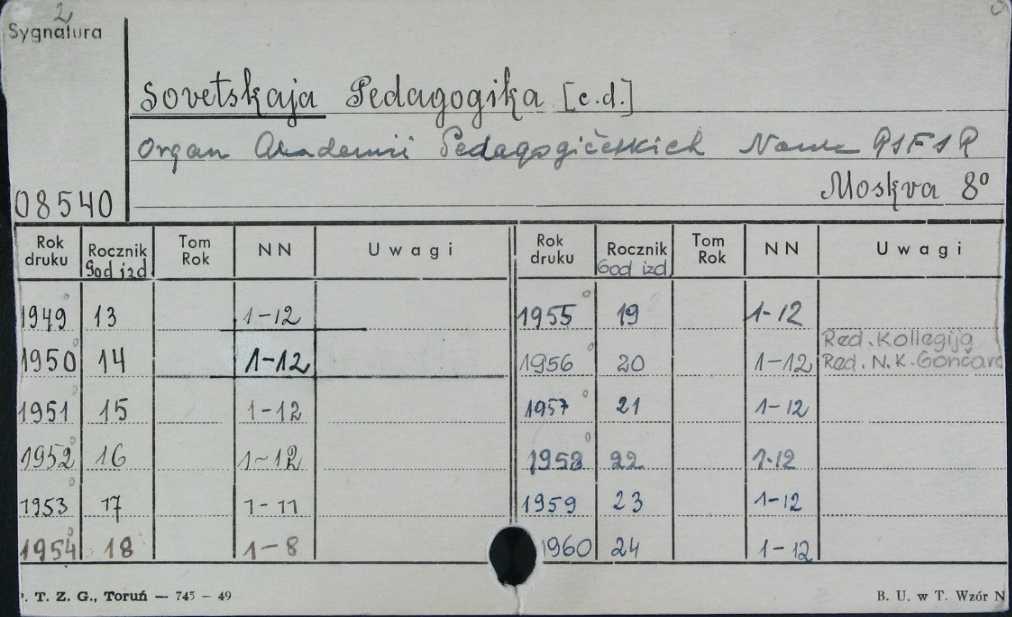 2
Sygnatura
Sovetskaja Pedagogika [c.d.]
Organ Akademii Pedagogičeskich Nauk RSFSR
Moskva 8°
08540
Rok druku Rocznik God izd Tom Rok NN Uwagi Rok druku Rocznik God izd Tom Rok NN Uwagi
1949 13 1-12 1955 19 1-12
1950 14 1-12 1956 20 1-12 Red. Kollegija Red. N.K. Gončaro
1951 15 1-12 1957 21 1-12
1952 16 1-12 1958 22 1-12
1953 17 1-11 1959 23 1-12
1954 18 1-8 1960 24 1-12
. T. Z. G., Toruń — 745 — 49 B. U. w T. Wzór N